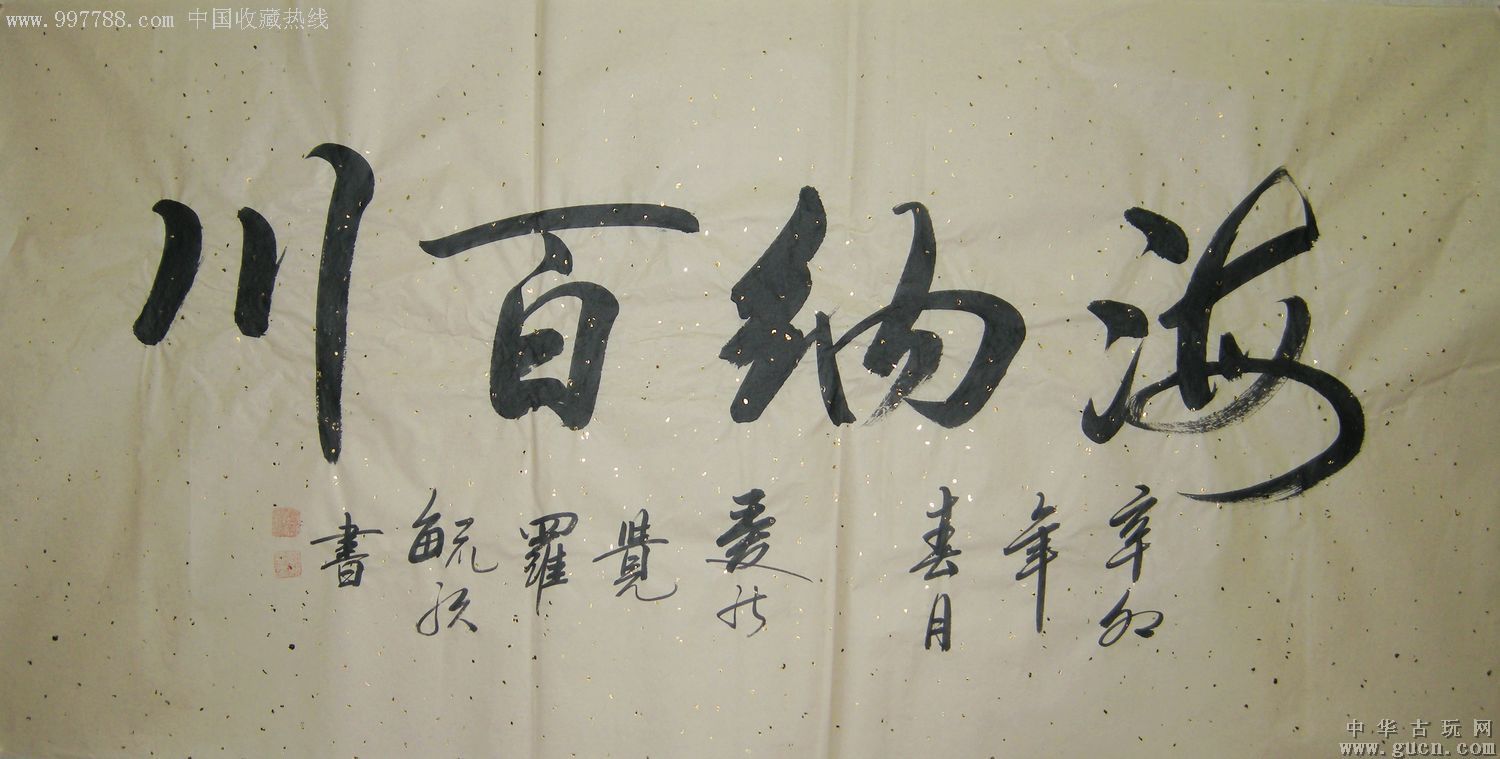 www.997788.com 中国收藏热线
海納百川
辛卯
年
春月
愛新
覺
羅
毓
書
中华古玩网
www.gucn.com